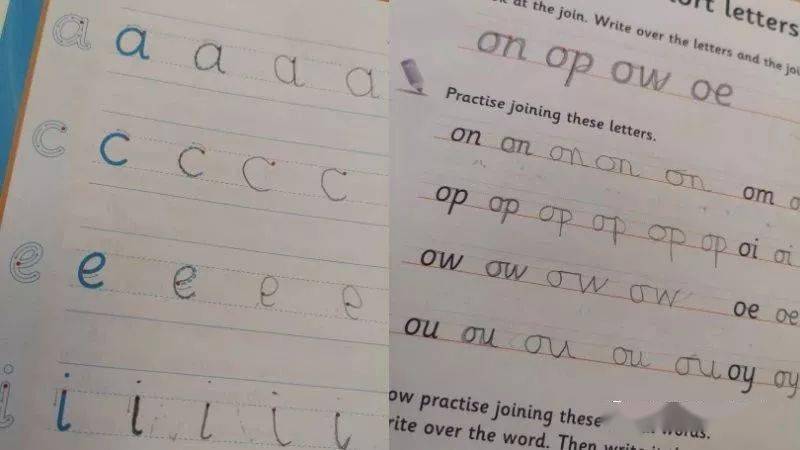 a a a a a
c c c c c
e e e e e
i i i i i i
letters
at the join. Write over the letters and the
on op ow oe
Practise joining these letters.
on on on on on om
op op op op op op oi oi
ow ow ow ow oe oe
ou ou ou ou ou oy oy
practise joining these words.
over the word. Then